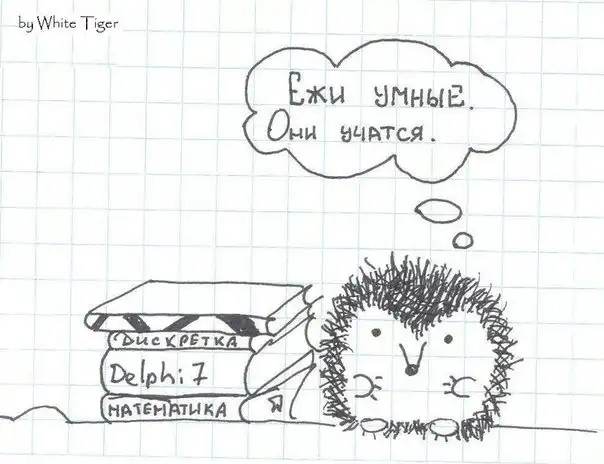 by White Tiger
Ежи умные.
Они учатся.
Дискретка
Delphi 7
Математика